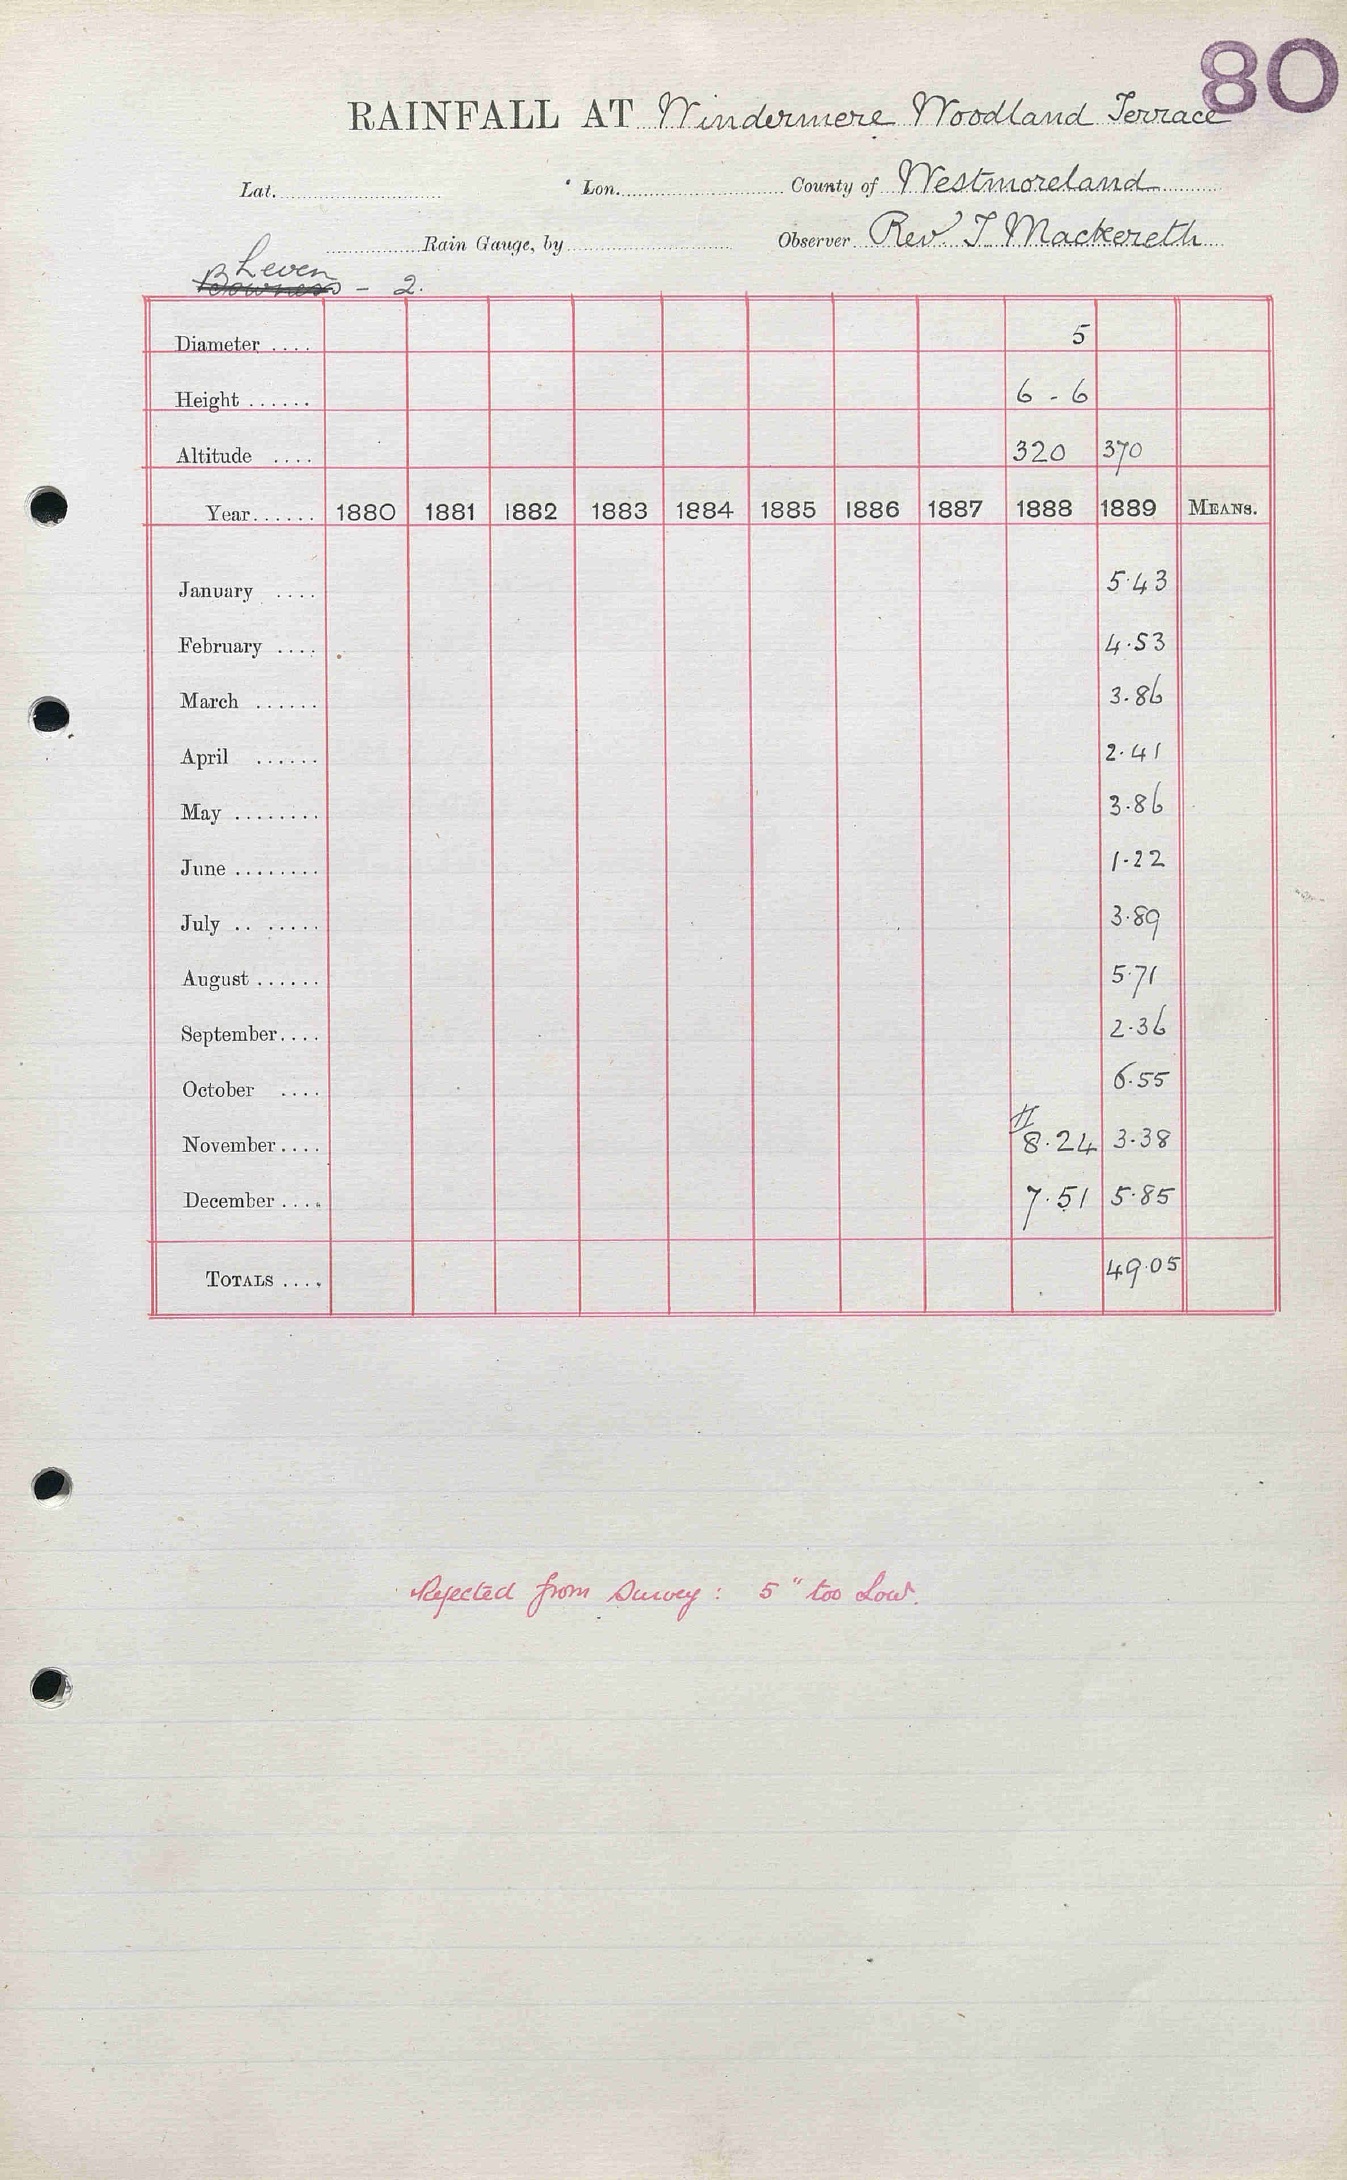 80
RAINFALL AT Windermere Woodland Terrace
Lat. Lon. County of Westmoreland
Rain Gauge, by Observer Rev T Mackereth
Leven
Bowness - 2.
Diameter .... 5
Height ...... 6 - 6
Altitude .... 320 370
Year...... 1880 1881 1882 1883 1884 1885 1886 1887 1888 1889 MEANS.
January .... 5.43
February .... 4.53
March ...... 3.86
April ...... 2.41
May ........ 3.86
June ........ 1.22
July .. ..... 3.89
August ...... 5.71
September.... 2.36
October .... 6.55
November.... # 8.24 3.38
December .... 7.51 5.85
TOTALS .... 49.05
Rejected from Survey: 5" too Low.